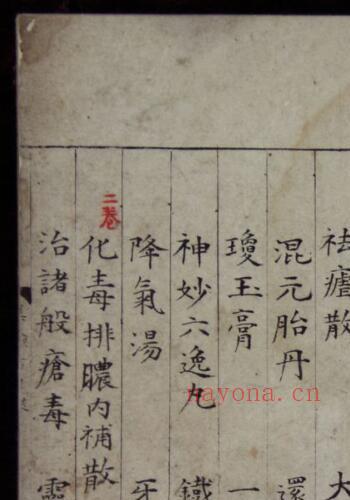 祛散 大
混元胎丹 還
瓊玉膏 一
神妙六逸丸 鐵
降氣湯 牙
二卷
化毒排膿內補散
治諸般瘡毒
nayona.cn